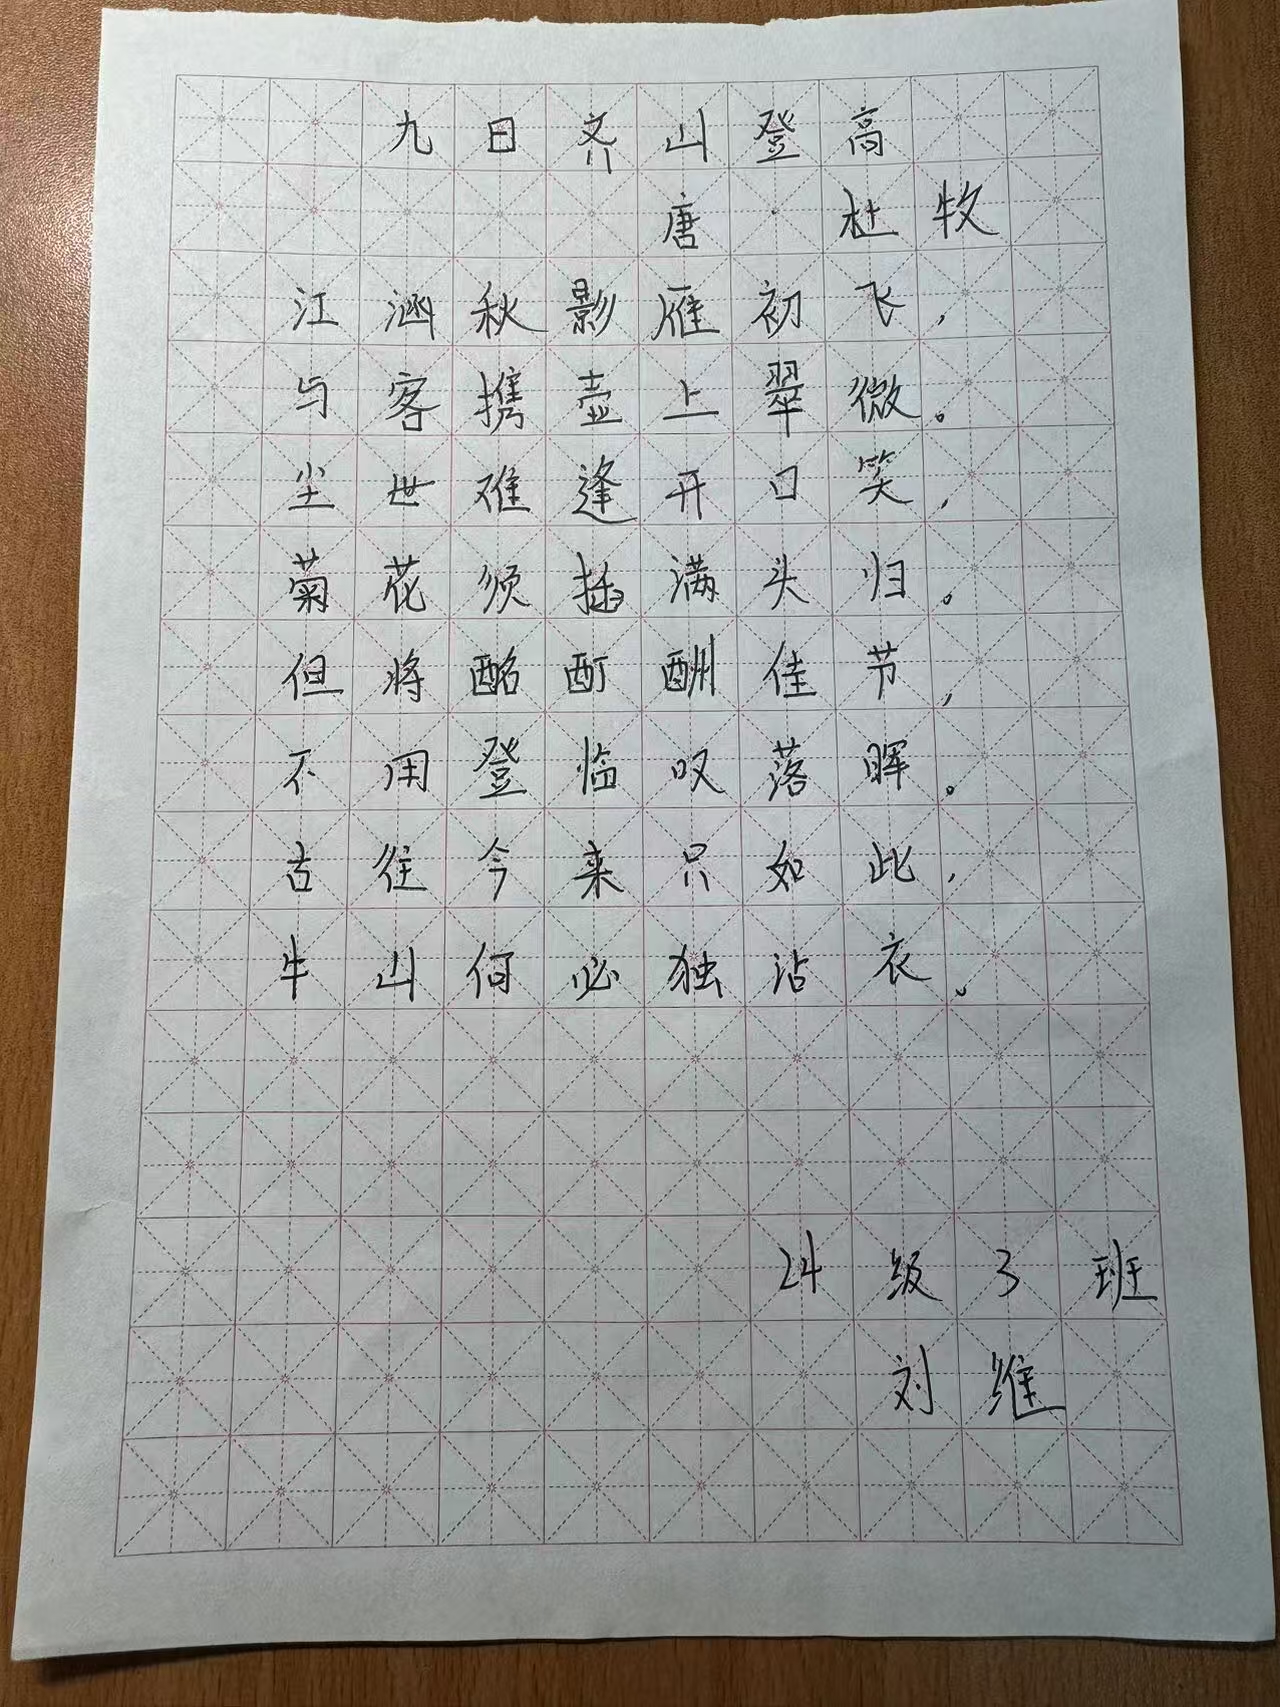 九日齐山登高
唐·杜牧
江涵秋影雁初飞，
与客携壶上翠微。
尘世难逢开口笑，
菊花须插满头归。
但将酩酊酬佳节，
不用登临叹落晖。
古往今来只如此，
牛山何必独沾衣。
24级3班
刘维